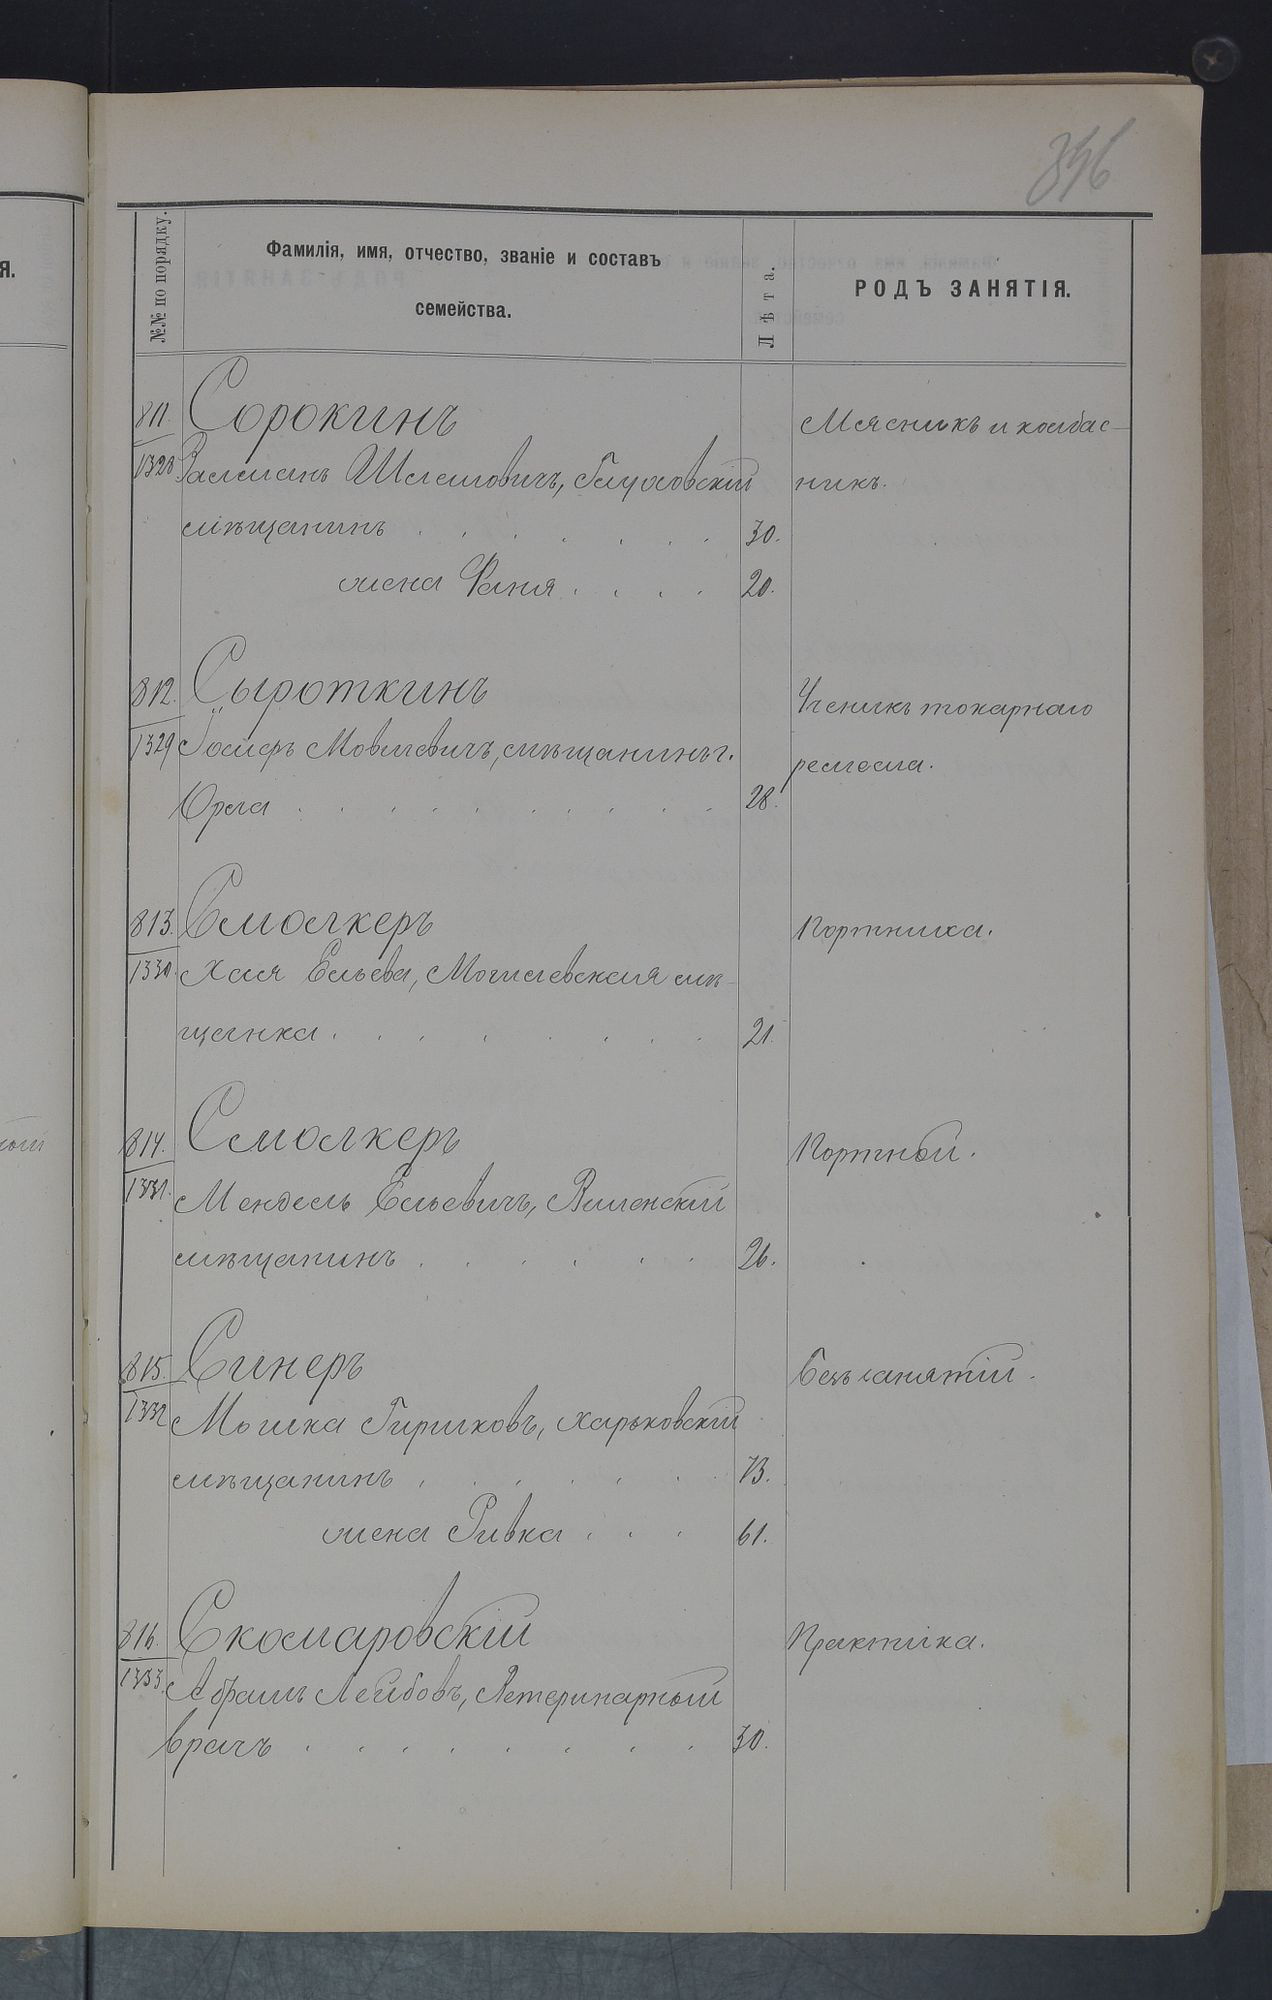 №№ по порядку.
Фамилія, имя, отчество, званіе и составъ
семейства.
Лѣта.
РОДЪ ЗАНЯТІЯ.
811. Сорокинъ Мясникъ и колбас-
1328 Залманъ Шлемовичъ, Глуховскій никъ.
мѣщанинъ . . . . . . . 30.
жена Фаня . . . . 20.
812. Сыроткинъ Ученикъ токарнаго
1329 Іосифъ Мовшевичъ, мѣщанинъ г. ремесла.
Орла . . . . . . . . . . 28.
813. Смолкеръ Портниха.
1330. Хая Ельева, Могилевская мѣ-
щанка . . . . . . . . 21.
814. Смолкеръ Портной.
1331. Мендель Ельевичъ, Виленскій
мѣщанинъ . . . . . . 26.
815. Синеръ Безъ занятій.
1332 Мошка Гиршковъ, Харьковскій
мѣщанинъ . . . . . . 73.
жена Ривка . . . 61.
816. Скомаровскій Практика.
1333. Абрамъ Лейбовъ, Ветеринарный
врачъ . . . . . . . . . 30.
Я.